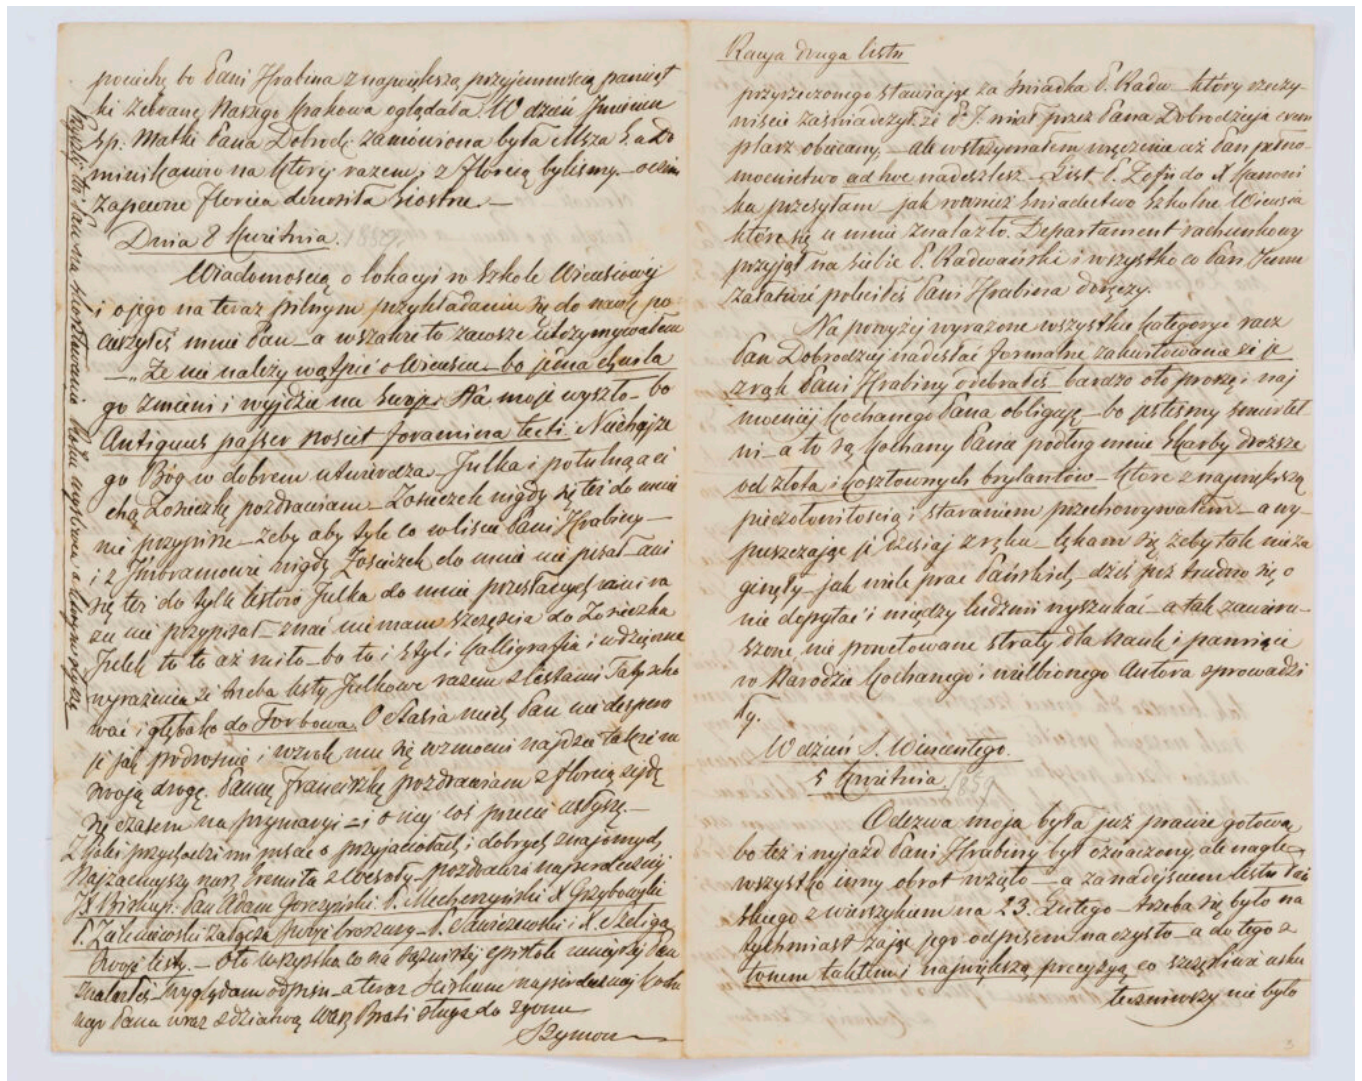 pociechę bo Pani Hrabina z największą przyjemnością pamiąt
ki zebrane Naszego Krakowa oglądała. W dzień Imienin
śp. Matki Pana Dobrodz. zamówiona była Msza S. a Do
minikanów na której razem z Florcią byliśmy — o czém
zapewne Florcia doniosła Siostrze. —
Dnia 8 Kwietnia
Wiadomością o lokacyi w szkole Wicusiowéj
i o jego na teraz pilnym przykładaniu się do nauk po
cieszyłeś mnie Pan — a wszakże to zawsze utrzymywałem
— „Że nie należy wątpić o Wicusiu — bo jedna chwila
go zmieni i wyjdzie na swoje. Na moje wyszło — bo
Antiquus passer noscit foramina tecti. Niechajże
go Bóg w dobrem utwierdza — Julka i potulną a ci
chą Zosieczkę pozdrawiam — Zosieczek nigdy się też do mnie
nie przypisze — żeby aby tyle co w liście Pani Hrabiny —
i z Imbramowic nigdy Zosieczek do mnie nie pisał — ani
się też do tylu listów Julka do mnie przesłanych ani ra
zu nie przypisał — znać nie mam szczęścia do Zosieczka
Julek to to aż miło — bo to i styl i kalligrafia i wdzięczne
wyrażenia że trzeba listy Julkowe razem z listami Taty scho
wać i głęboko do Torbowa. O Stasia niech Pan nie despero
je jak podrośnie i wzrok mu się wzmocni najdzie także na
swoją drogę. Pannę Franciszkę pozdrawiam z Florcią zejdę
się czasem na prymaryi = i o niej coś przecie usłyszę. —
Z kolei przychodzi mi pisać o przyjaciołach i dobrych znajomych
Najzacniejszy nasz Eremita z Wesołéj — pozdrawia najserdeczniéj
JX. Biskup. Pan Adam Gorczyński. P. Mecherzyński X. Grzybowski
P. Zaleniewski załącza swoje broszury — P. i X. Szeliga
swoje listy. — Oto wszystko co na sążnistéj epistole niniejszéj Pan
znalazłeś — wyglądam odpisu — a teraz ściskam najserdeczniéj Kocha
nego Pana wraz z dziatwą Wasz Brat i sługa do zgonu
Szymon
Racya druga listu
przyrzeczonego stawiając za świadka P. Radw — który rzeczy-
wiście zaświadczył że P. J. miał przez Pana Dobrodzieja exem
plarz obiecany, — ale wstrzymałem wręczenie aż Pan pełno-
mocnictwo ad hoc nadeszlesz — List P. Zofii do X. Kanoni
ka przesyłam — jak również świadectwo szkolne Wicusia
które się u mnie znalazło. Departament rachunkowy
przyjął na siebie P. Radwański i wszystko co Pan Jemu
załatwić poleciłeś Pani Hrabina doręczy.
Na powyżéj wyrażone wszystkie kategorye racz
Pan Dobrodziéj nadesłać formalne zakwitowanie że je
z rąk Pani Hrabiny odebrałeś — bardzo o to proszę i naj
mocniéj kochanego Pana obliguję — bo jesteśmy śmiertel
ni — a to są kochany Panie podług mnie skarby droższe
od złota i kosztownych brylantów — które z największą
pieczołowitością i staraniem przechowywałem — a wy-
puszczając je dzisiaj z ręku — lękam się żeby tak nie za
ginęły — jak wiele prac Pańskich, — dziś już trudno się o
nie dopytać i między ludźmi wyszukać — a tak zawieru-
szone nie powetowane straty dla nauk i pamięci
w Narodzie kochanego i wielbionego Autora sprowadzi
ły.
W dzień S. Wincentego.
5 Kwietnia 1859
Odezwa moja była już prawie gotową
bo też i wyjazd Pani Hrabiny był oznaczony, ale nagle
wszystko inny obrot wzięło — a za nadejściem listu Pań
skiego z wierszykiem na 23. Lutego — trzeba się było na
tychmiast zająć jego odpisem na czysto — a do tego z
tonem taktem i największą precyzyą co szczęśliwie usku
teczniwszy nie było
3